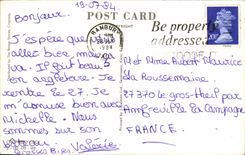 19.07.84
POST CARD
Bonjour.
Be properly
addressed
BANBURY
1984
J'espère que
allez bien, moi ça
va. Il fait beau
en angleterre. Je
rentre le 27. Je
m'amuse bien avec
Michelle. Nous
sommes sur son
bateau.
Valérie
Mr et Mme Maurice
27370 le gros-theil par
Amfreville la Campagne
FRANCE.